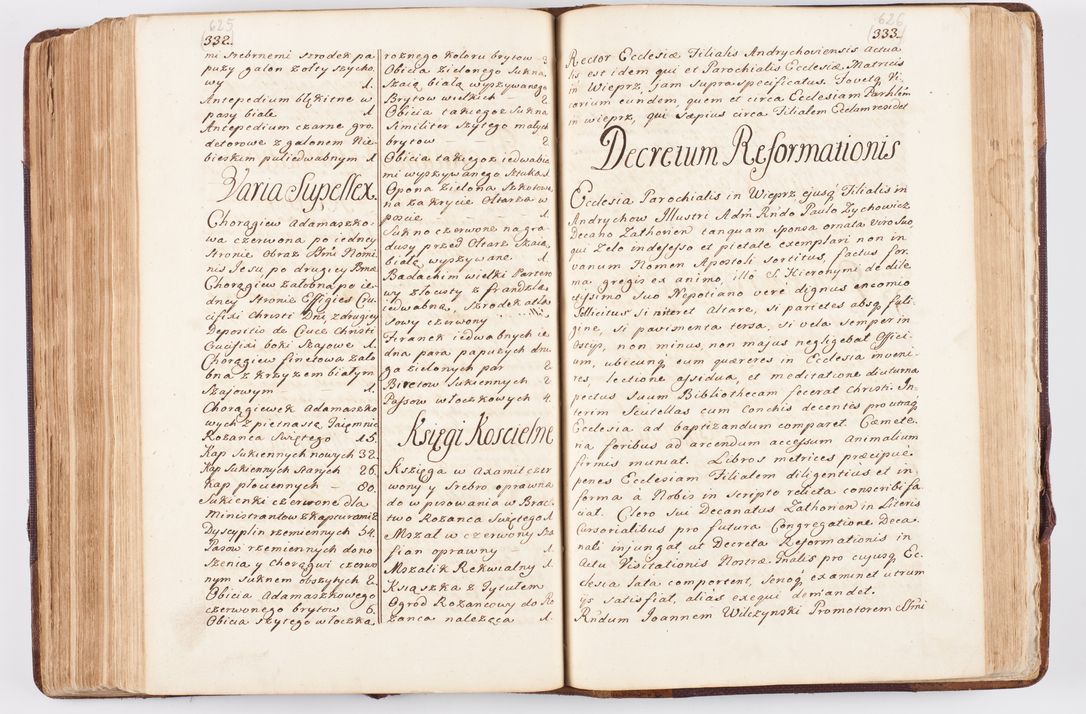 625
332.
mi srebrnemi srodek pa
puzy galon zołty szycho
wy 1.
Antepedium błękitne w
pasy białe 1
Antepedium czarne gro
detorowe z galonem Nie
bieskim pułiedwabnym 1
Varia Supellex.
Chorągiew Adamaszko
wa czerwona po iedney
stronie Obraz SSmi Nomi
nis Jesu, po drugiey
Chorągiew żałobna po ie
dney stronie Effigies Cru
cifixi Christi Dni, z drugiey
Depositio de Cruce Christi
Crucifixi boki szajowe 1.
Chorągiew finetowa żało
bna z krzyzem białym
szajowym 1.
Chorągiewek Adamaszko
wych z pietnastą Taiemnic
Rożańca Swiętego 15.
Kap sukiennych nowych 32.
Kap sukiennych starych 26.
Kap płociennych — 80.
Sukienki czerwone dla
Ministrantow z kapturami 2
Dyscyplin rzemiennych 34.
Pasow rzemiennych do no
szenia y Chorągwi czerwo
nym suknem obszytych 2.
Obicia Adamaszkowego
czerwonego brytow 6.
Obicia szytego włoczką,
rożnego koloru brytow 2
Obicia zielonego sukna
szaią białą wyszywanego
Brytow wielkich — 2.
Obicia takiegoz sukna
similiter szytego małych
brytow — 2
Obicia takiegoz iedwabia
mi wyszywanego sztuka 1
Opona zielona sukienna
na zakrycie Ołtarza w
poscie — 1.
Sukno czerwone na gra
dusy przed Ołtarz szaią
białą wyszywane 1.
Badachim wielki Partero
wy złocisty z frandzlą
iedwabną, srzodek atła
sowy czerwony 1.
Firanek iedwabnych ie
dna para papuzych dru
ga zielonych par 2.
Biretow sukiennych 2
Passow włoczkowych 4.
Księgi Koscielne
Xsięga w Axamit czer
wony y srebro oprawna
do wpisowania w Brac
two Rożańca Swiętego 1
Mszał w czerwony Sza
fian oprawny — 1.
Mszalik Rekwialny 1
Xsiąszka z Tytułem
Ogród Rożańcowy do Ro
zańca należąca 1.
626
333.
Rector Ecclesiæ Filialis Andrychoviensis actua
lis est idem qui et Parochialis Ecclesiæ Matricis
in Wieprz, jam supra specificatus. Fovetq Vi
carium eundem, quem et circa Ecclesiam Parhlem
in Wieprz, qui sæpius circa Filialem Ecclam residet
Decretum Reformationis
Ecclesia Parochialis in Wieprz ejusq Filialis in
Andrychow Illustri Adm Rndo Paulo Zychowicz
Decano Zathorien tanquam Sponsa ornata viro suo,
qui Zelo indefesso et pietate exemplari non in
vanum Nomen Apostoli sortitus, factus for
ma gregis ex animo, illô S. Hieronymi de dile
ctissimo suo Nepotiano verè dignus encomio
sollicitus si niteret Altare, si parietes absq fuli
gine, si pavimenta tersa, si vela semper in
Ostijs, non minus, non majus negligebat Offici
um, ubicunq eum quæreres in Ecclesia inveni
res, lectione assidua, et meditatione diuturna
pectus suum Bibliothecam fecerat Christi. In-
terim Scutellas cum Conchis decentes pro utraq
Ecclesia ad baptizandum comparet. Cæmete-
ria foribus ad arcendum accessum Animalium
firmis muniat. Libros metrices præcipuè
penes Ecclesiam Filialem diligentius et in
forma à Nobis in Scripto relicta conscribi fa
ciat. Clero sui Decanatus Zathorien in Literis
Cursorialibus pro futura Congregatione Deca
nali injungat ut Decreta Reformationis in
Actu Visitationis Nostræ Gnalis pro cujusq Ec
clesia lata comportent, seorsq examinet utrum
ijs satisfiat, alias exequi demandet.
Rndum Joannem Wilczynski Promotorem SSmi